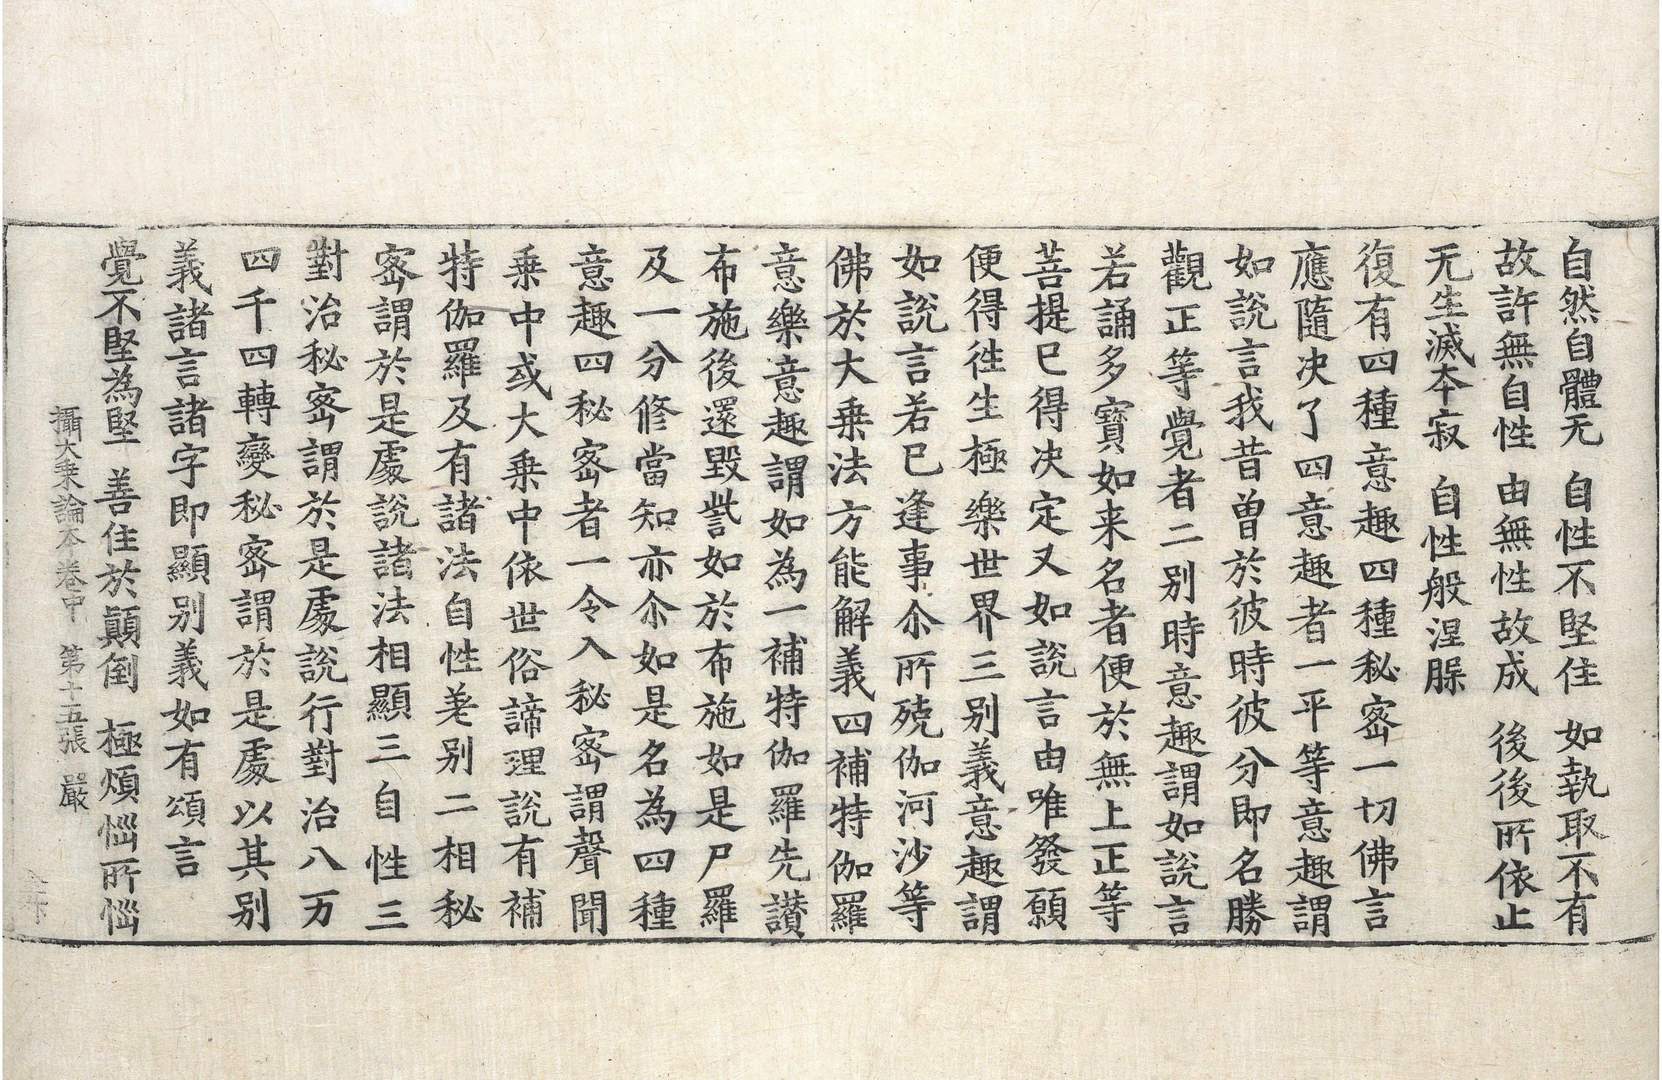 自然自體无　自性不堅住　如執取不有
故許無自性　由無性故成　後後所依止
无生滅本寂　自性般涅縣
復有四種意趣四種秘宻一切佛言
應隨决了四意趣者一平等意趣謂
如說言我昔曽於彼時彼分即名勝
觀正等覺者二别時意趣謂如說言
若誦多寳如来名者便於無上正等
菩提已得决定又如說言由唯發願
便得徃生極樂世界三别義意趣謂
如說言若已逢事尒所殑伽河沙等
佛於大乗法方能解義四補特伽羅
意樂意趣謂如為一補特伽羅先讃
布施後還毀訾如於布施如是尸羅
及一分修當知亦尒如是名為四種
意趣四秘宻者一令入秘宻謂聲聞
乗中或大乗中依世俗諦理說有補
特伽羅及有諸法自性差别二相秘
宻謂於是處說諸法相顯三自性三
對治秘宻謂於是處說行對治八万
四千四轉變秘宻謂於是處以其别
義諸言諸字即顯别義如有頌言
覺不堅為堅　善住於顛倒　極煩惱所惱
攝大乗論本卷中　第十五張　嚴